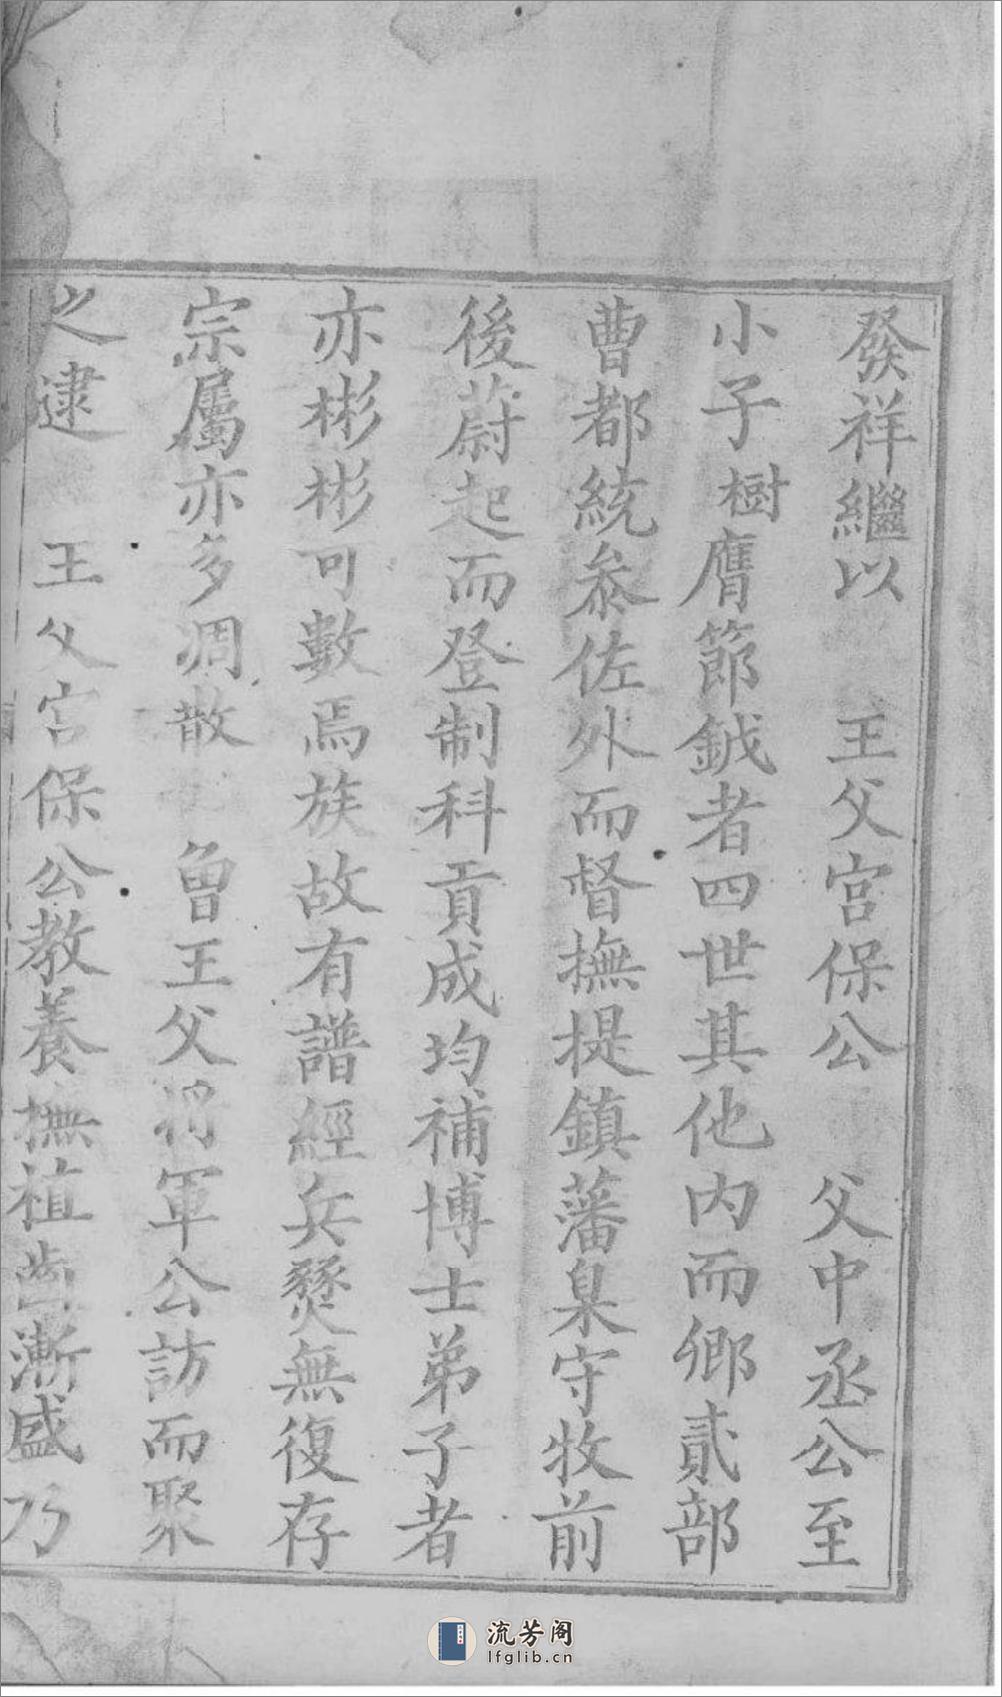 發祥繼以　王父宮保公　父中丞公至
小子樹膺節鉞者四世其他內而鄉貳部
曹都統叅佐外而督撫提鎮藩臬守牧前
後蔚起而登制科貢成均補博士弟子者
亦彬彬可數焉族故有譜經兵燹無復存
宗屬亦多凋散　曾王父將軍公訪而聚
之逮　王父宮保公教養撫植齒漸盛乃
流芳阁
lfglib.cn